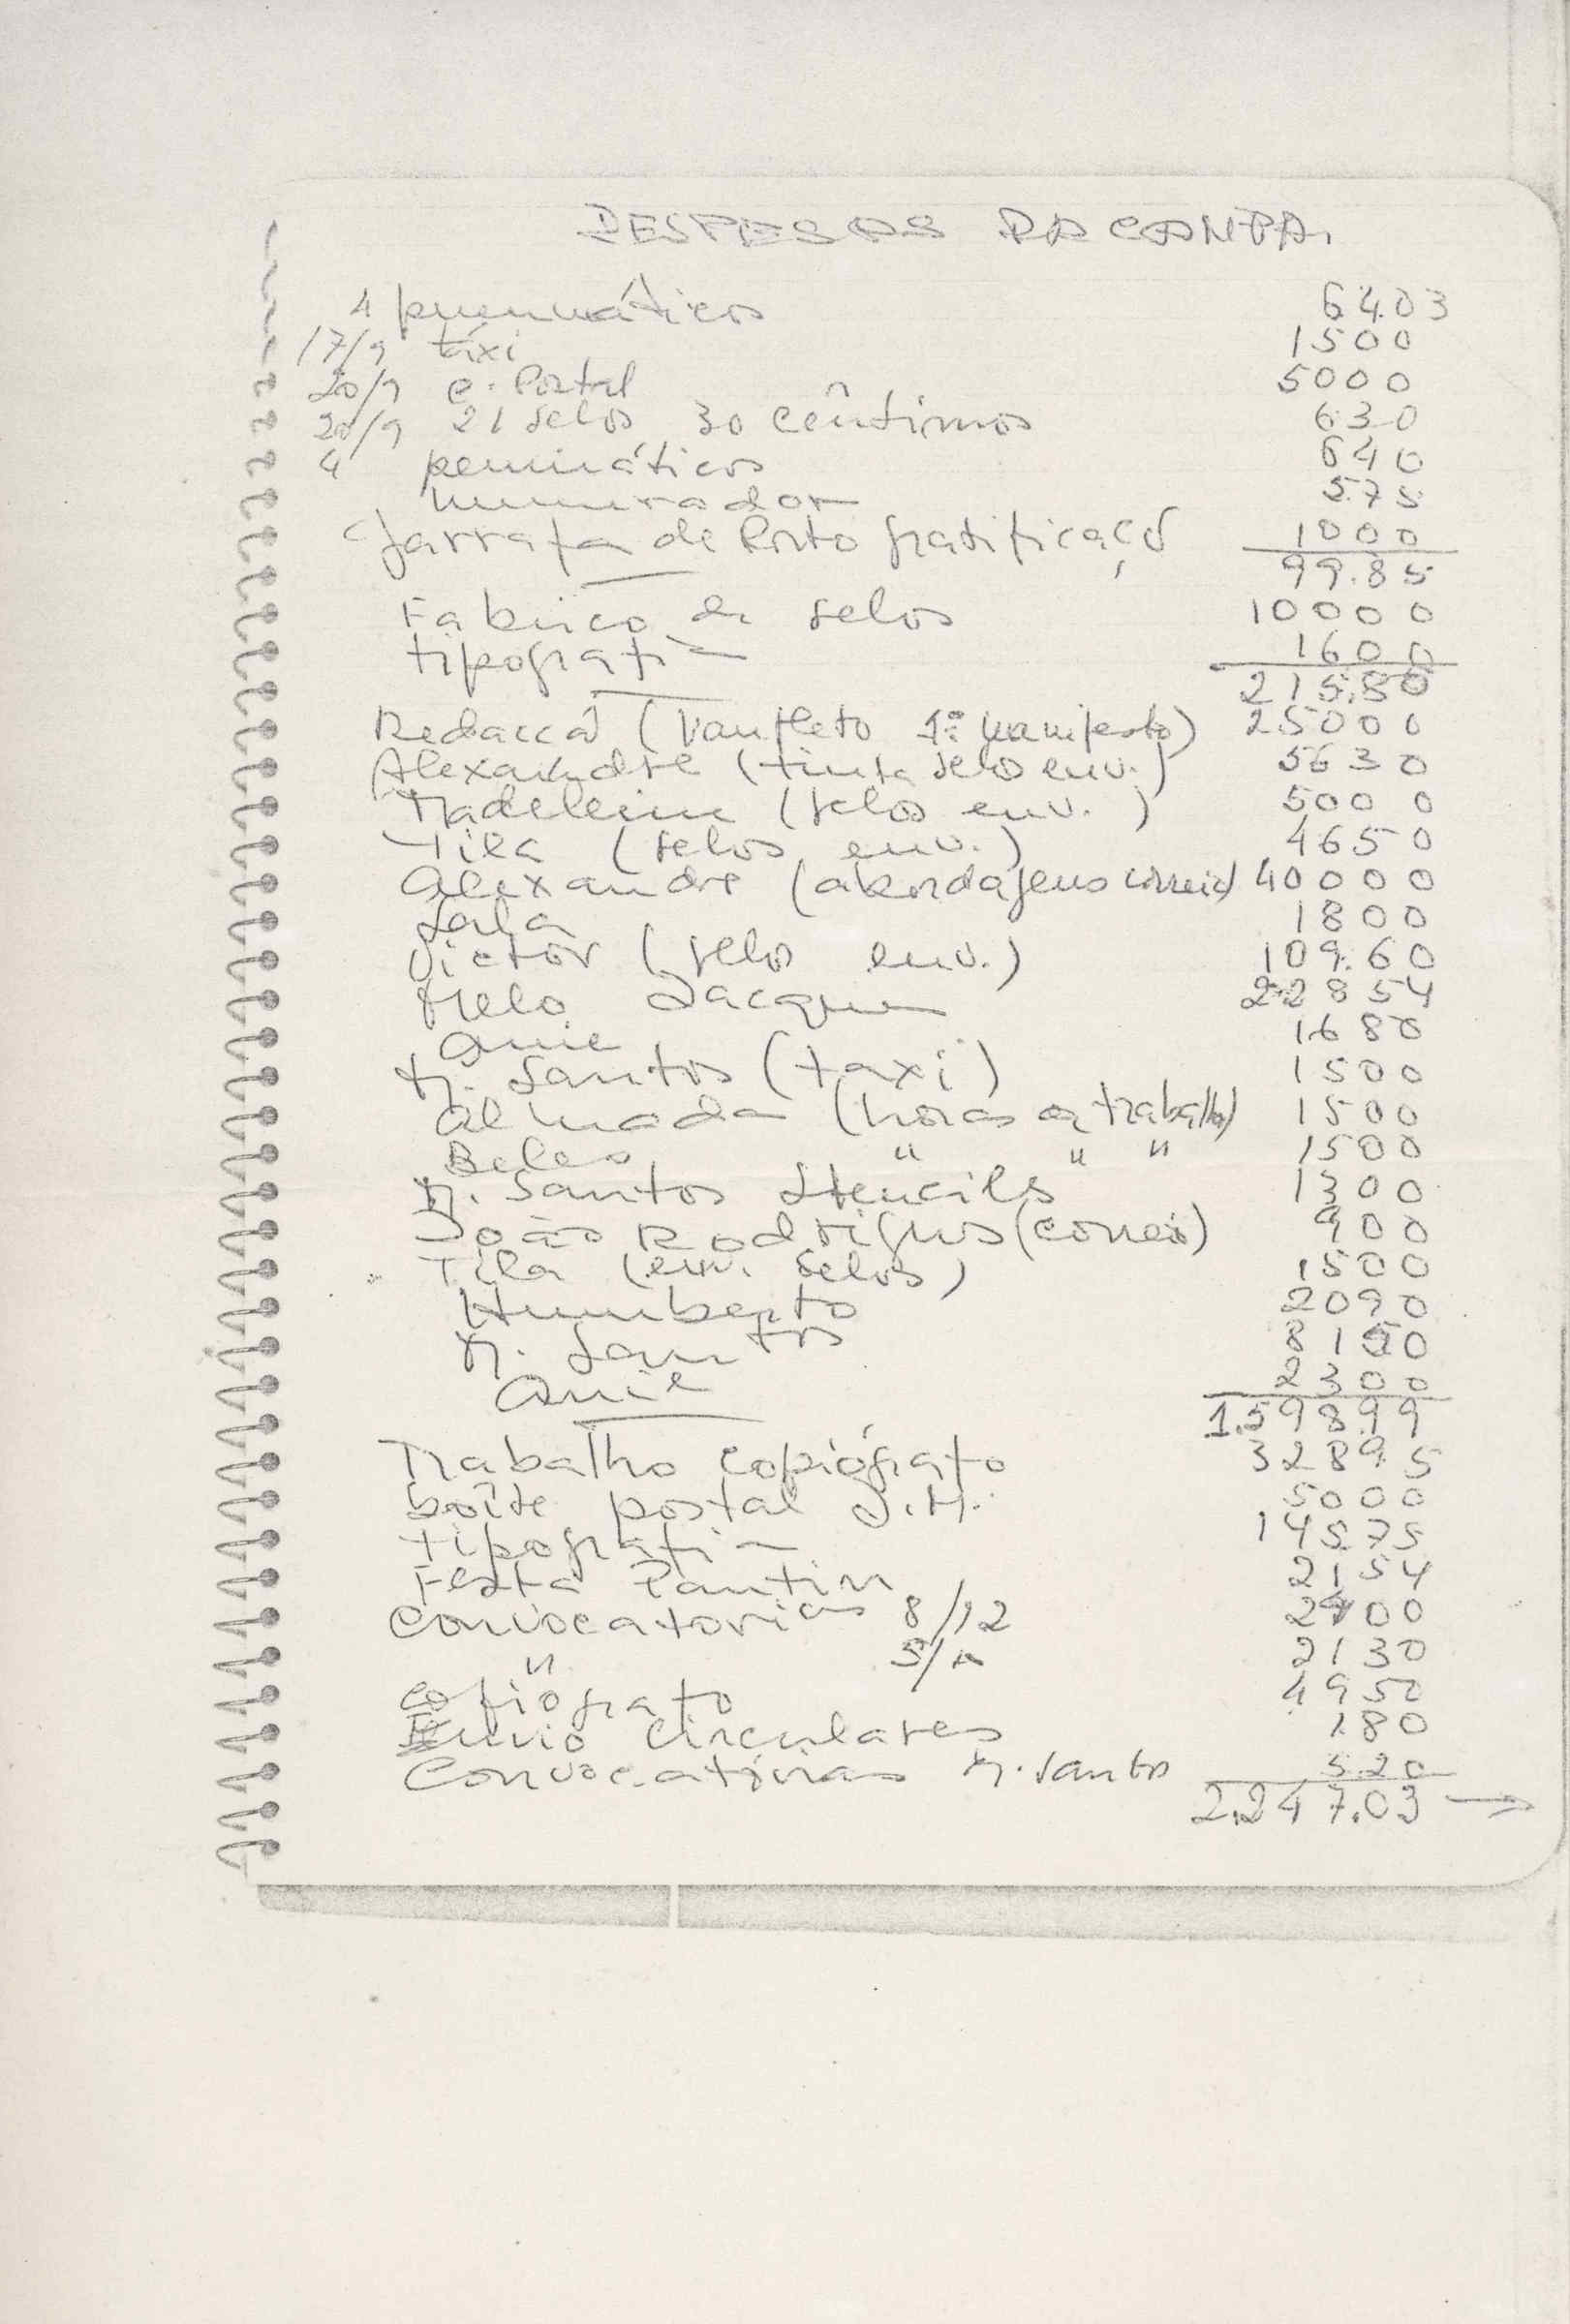 DESPESAS DA CONTA.
4 pneumáticos 6403
17/9 táxi 1500
20/9 c. Postal 5000
20/9 21 selos 30 cêntimos 630
4 penináticos 640
numerador 575
Garrafa de Porto gratificaçõ 1000
99.85
Fabrico de selos 10000
tipografia 1600
215.80
Redaccã (Vanfleto 1º manifesto) 25000
Alexandre (tinta selo env.) 5630
Madeleine (selos env.) 5000
Tila (selos env.) 4650
Alexandre (abordagens correio) 40000
Sala 1800
Victor (selo env.) 109.60
Melo Jacques 22854
Anie 1680
M. Santos (taxi) 1500
Almada (horas de trabalho) 1500
Beles " " " 1500
M. Santos Stencils 1300
João Rodrigues (correio) 900
Tila (env. selos) 1500
Humberto 2090
M. Santos 8150
Anie 2300
1.598.99
Trabalho copiógrafo 32895
boîte postal J.M. 5000
tipografia 14575
Festa Pantin 2154
Convocatorias 8/12 2400
" 5/ 2130
copiógrafo 4950
Envio circulares 180
Convocatórias M. Santos 5.20
2.247.03 →